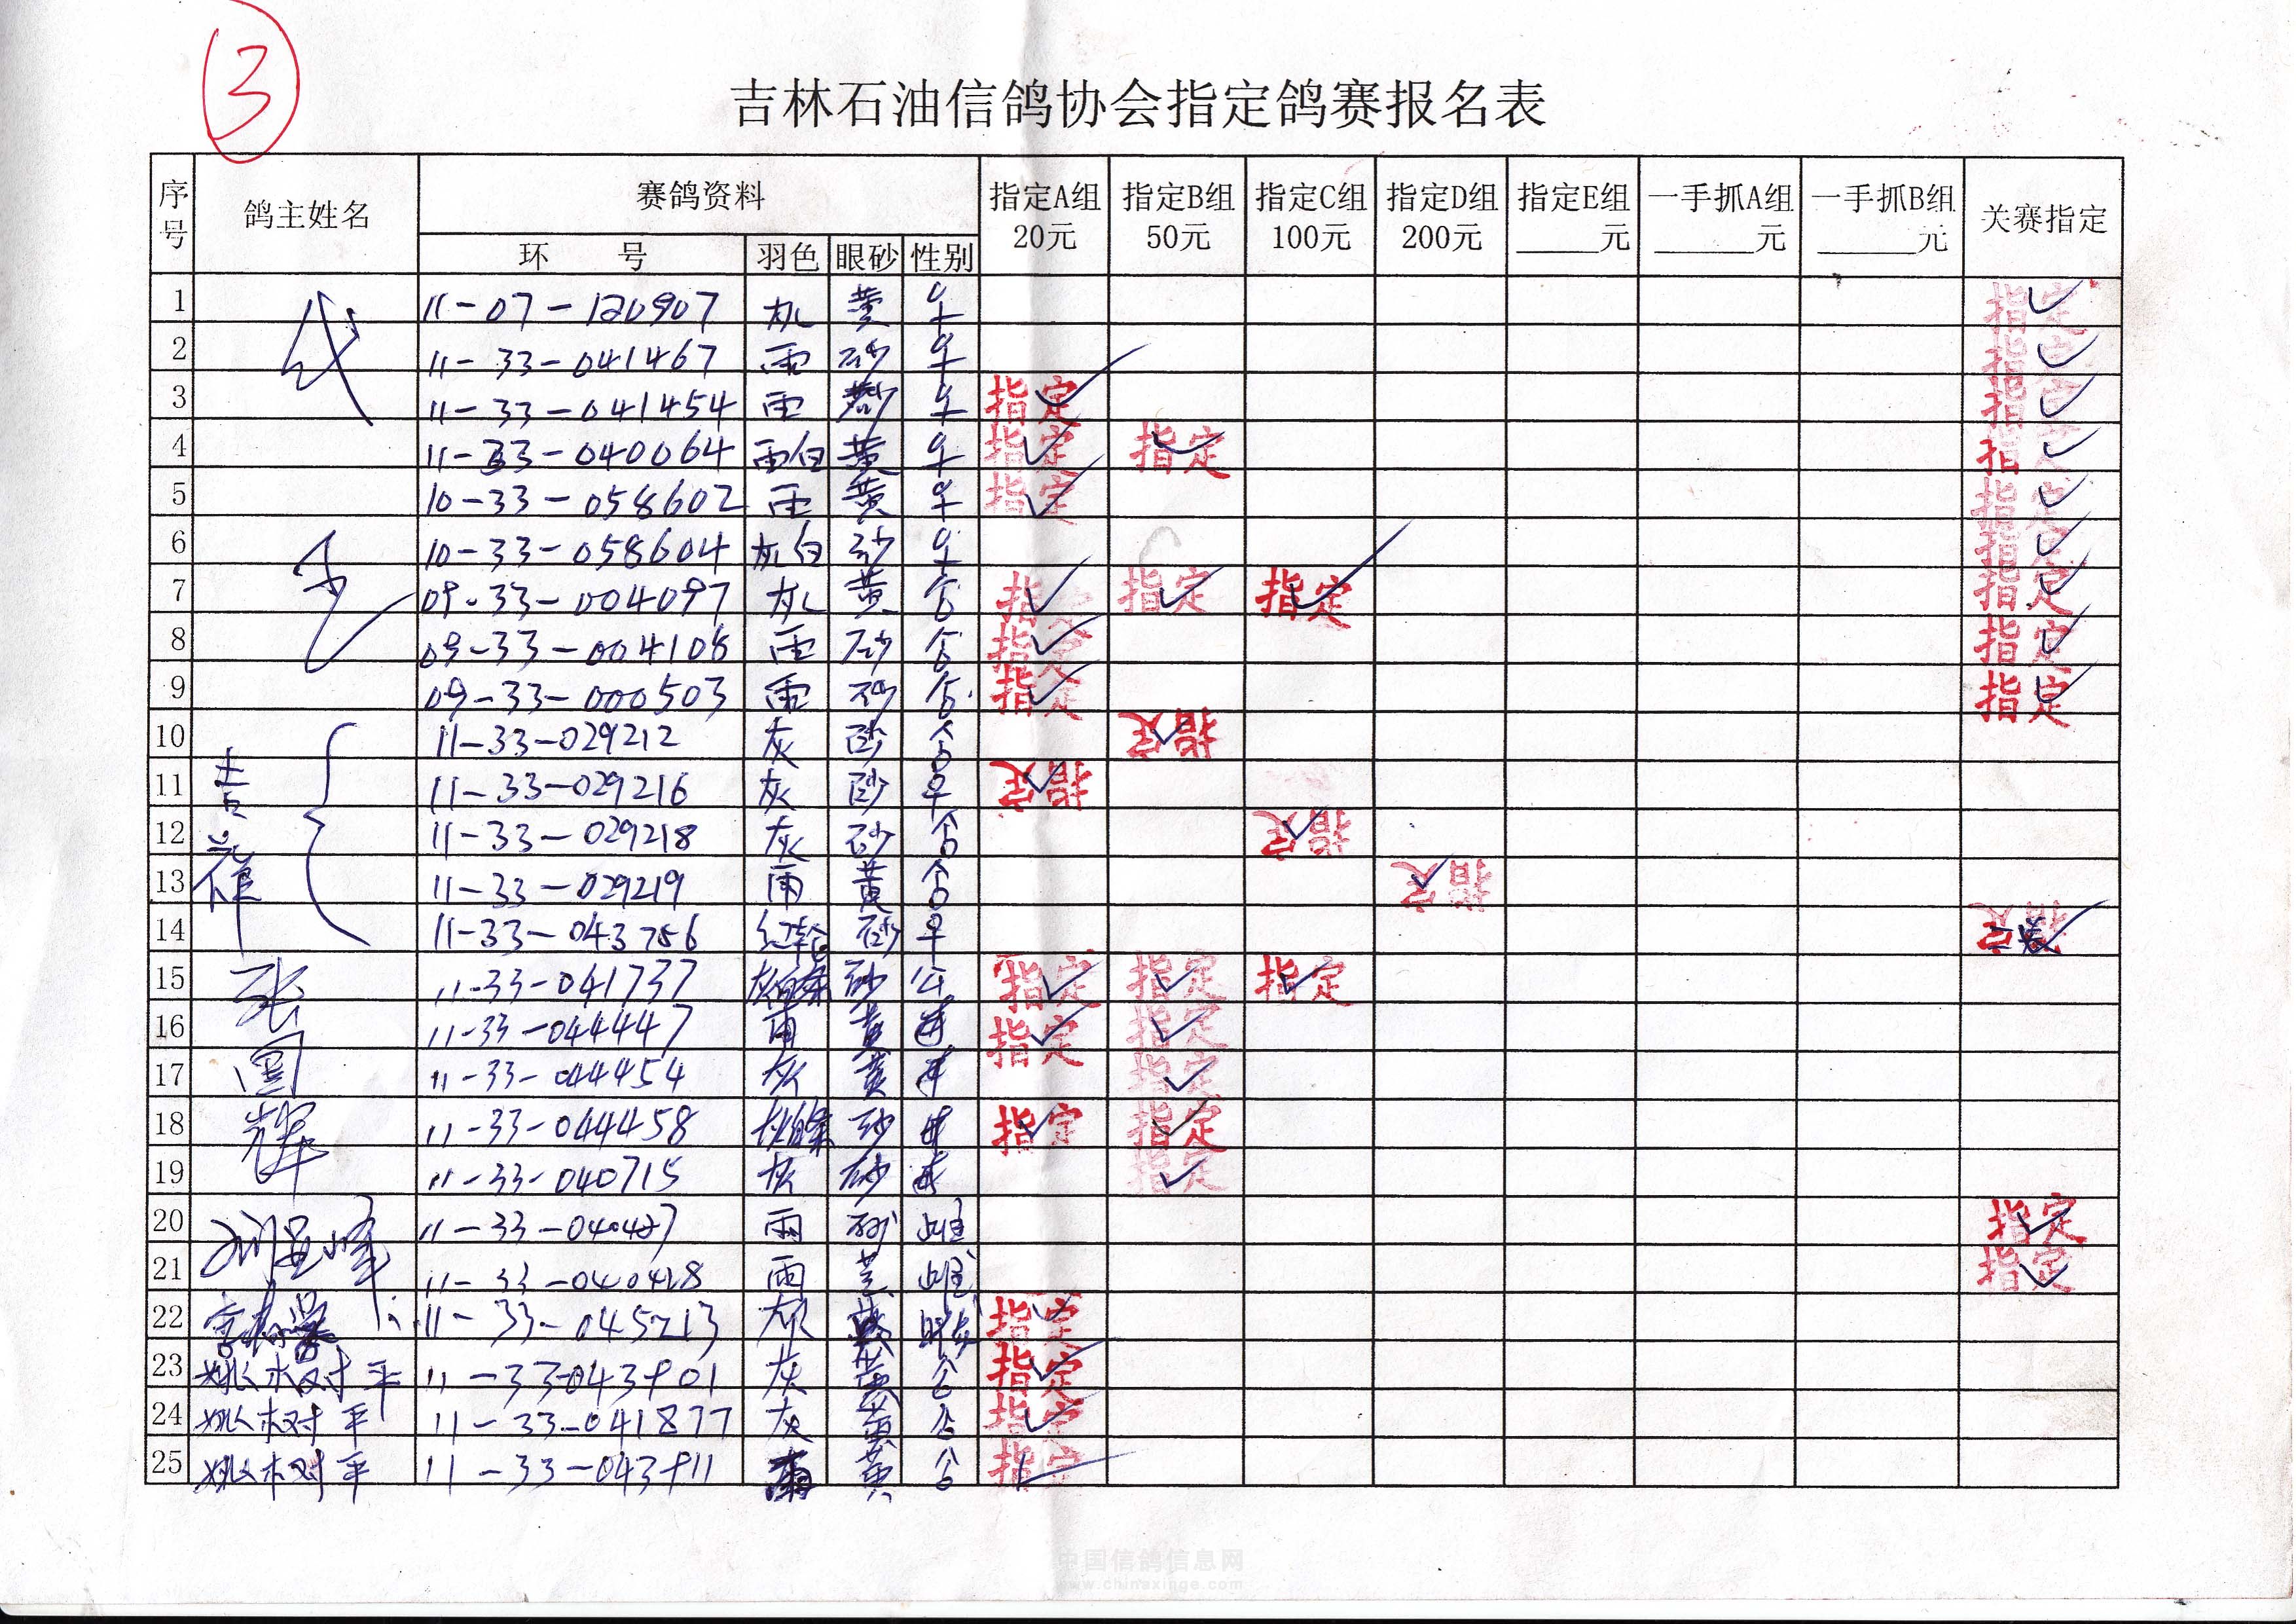 3
吉林石油信鸽协会指定鸽赛报名表
序号 鸽主姓名 赛鸽资料 指定A组 20元 指定B组 50元 指定C组 100元 指定D组 200元 指定E组 ______元 一手抓A组 ______元 一手抓B组 ______元 关赛指定
环 号 羽色 眼砂 性别
1 11-07-120907 灰 黄 ✓ 指定
2 11-33-041467 雨 砂 ✓ 指定
3 11-33-041454 雨 指定 ✓ 指定 ✓
4 11-33-040064 雨白 黄 指定 ✓ 指定 ✓ 指定 ✓
5 10-33-058602 雨 黄 指定 ✓ 指定 ✓
6 10-33-058604 灰白 砂 指定 ✓
7 09-33-004097 灰 黄 指定 ✓ 指定 ✓ 指定 ✓ 指定 ✓
8 09-33-004108 雨 砂 指定 ✓ 指定 ✓
9 09-33-000503 雨 砂 指定 ✓ 指定 ✓
10 11-33-029212 灰 砂 指定 ✓
11 吉祥 11-33-029216 灰 砂 指定 ✓
12 11-33-029218 灰 砂 指定 ✓
13 11-33-029219 雨 黄 指定 ✓
14 11-33-043756 红轮 砂 指定 ✓
15 张国辉 11-33-041737 灰白条 砂 公 指定 ✓ 指定 ✓ 指定 ✓
16 11-33-044447 雨 黄 指定 ✓ 指定 ✓
17 11-33-044454 灰 黄 指定 ✓
18 11-33-044458 灰白条 砂 指定 ✓ 指定 ✓
19 11-33-040715 灰 砂 指定 ✓
20 11-33-040427 雨 砂 雌 指定 ✓
21 11-33-040428 雨 雌 指定 ✓
22 11-33-045213 灰 指定 ✓
23 姚树平 11-33-043901 灰 黄 指定 ✓
24 姚树平 11-33-041877 灰 黄 指定 ✓
25 姚树平 11-33-043911 黄 指定 ✓
中国信鸽信息网
www.chinaxinge.com